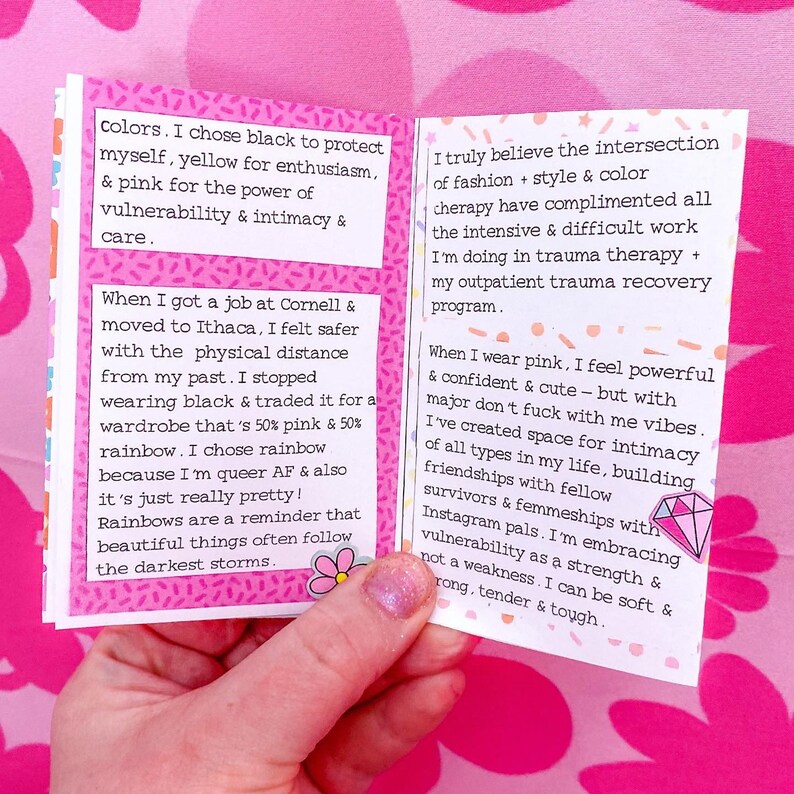 colors. I chose black to protect
myself, yellow for enthusiasm,
& pink for the power of
vulnerability & intimacy &
care.
When I got a job at Cornell &
moved to Ithaca, I felt safer
with the physical distance
from my past. I stopped
wearing black & traded it for a
wardrobe that's 50% pink & 50%
rainbow. I chose rainbow
because I'm queer AF & also
it's just really pretty!
Rainbows are a reminder that
beautiful things often follow
the darkest storms.
I truly believe the intersection
of fashion + style & color
therapy have complimented all
the intensive & difficult work
I'm doing in trauma therapy +
my outpatient trauma recovery
program.
When I wear pink, I feel powerful
& confident & cute – but with
major don't fuck with me vibes.
I've created space for intimacy
of all types in my life, building
friendships with fellow
survivors & femmeships with
Instagram pals. I'm embracing
vulnerability as a strength &
not a weakness. I can be soft &
strong, tender & tough.